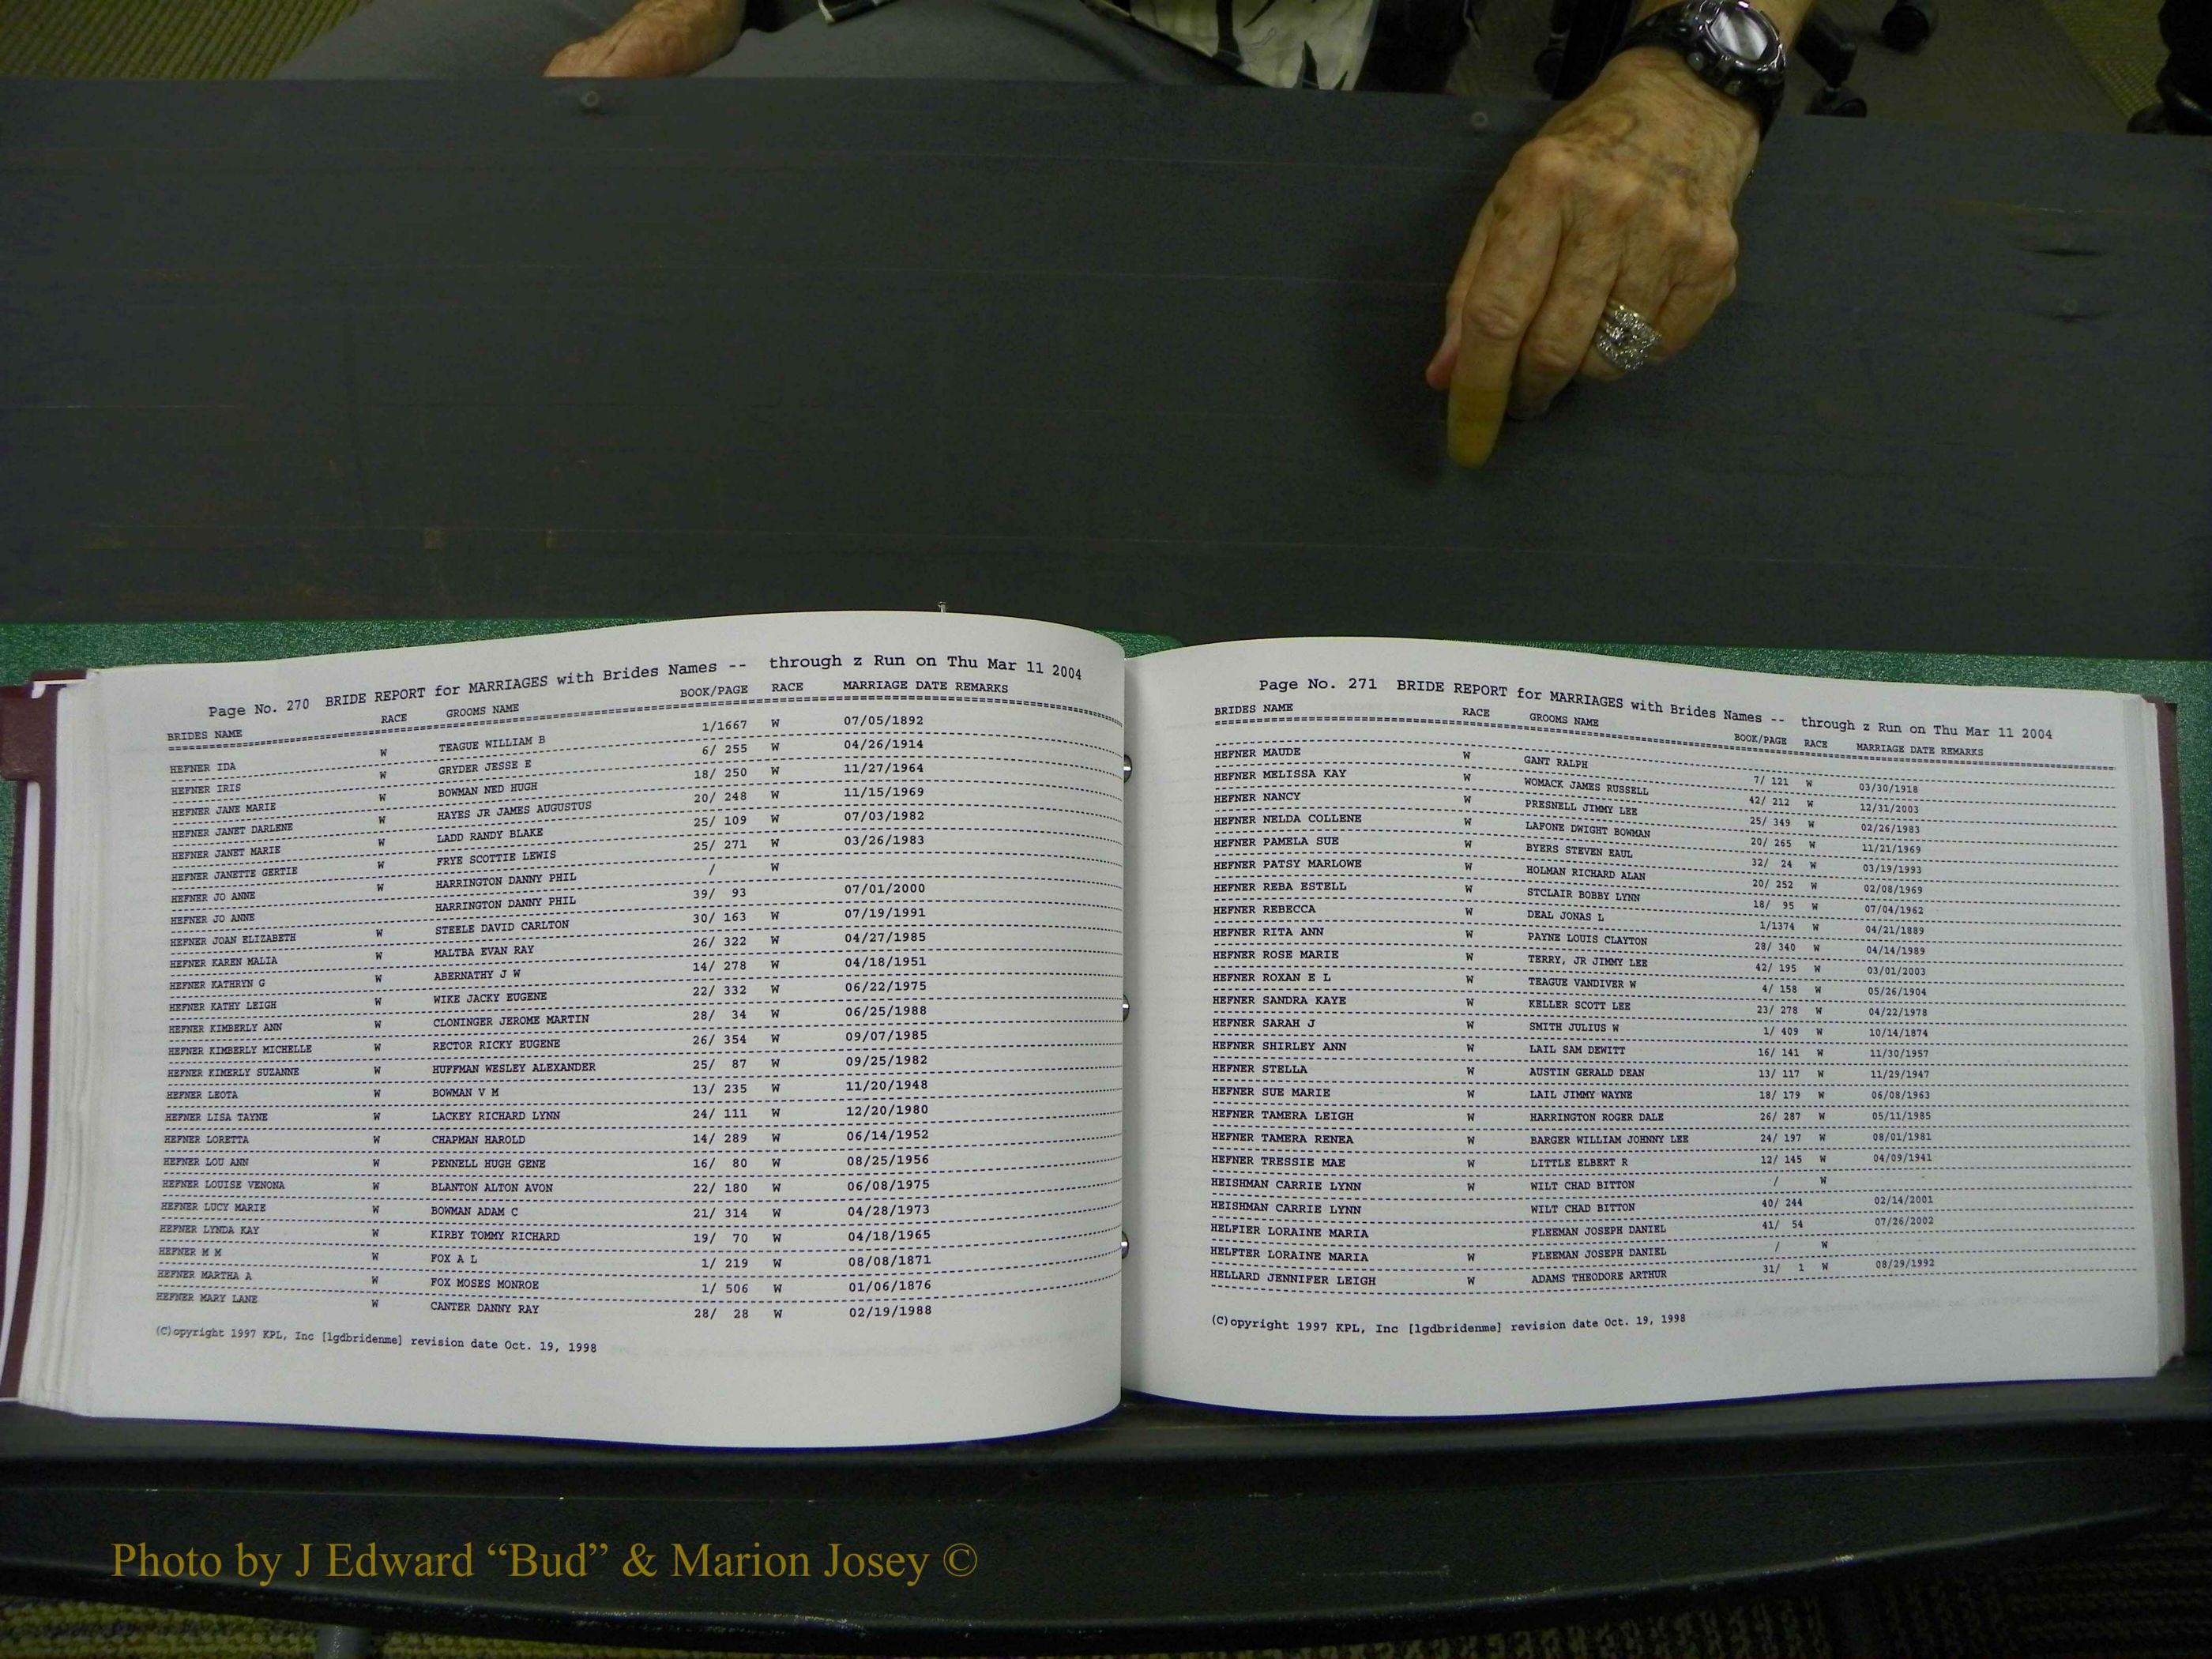 Page No. 270 BRIDE REPORT for MARRIAGES with Brides Names -- through z Run on Thu Mar 11 2004
BRIDES NAME RACE GROOMS NAME BOOK/PAGE RACE MARRIAGE DATE REMARKS
HEFNER IDA W TEAGUE WILLIAM B 1/1667 W 07/05/1892
HEFNER IRIS W GRYDER JESSE E 6/ 255 W 04/26/1914
HEFNER JANE MARIE W BOWMAN NED HUGH 18/ 250 W 11/27/1964
HEFNER JANET DARLENE W HAYES JR JAMES AUGUSTUS 20/ 248 W 11/15/1969
HEFNER JANET MARIE W LADD RANDY BLAKE 25/ 109 W 07/03/1982
HEFNER JANETTE GERTIE W FRYE SCOTTIE LEWIS 25/ 271 W 03/26/1983
HEFNER JO ANNE W HARRINGTON DANNY PHIL / W
HEFNER JO ANNE HARRINGTON DANNY PHIL 39/ 93 07/01/2000
HEFNER JOAN ELIZABETH W STEELE DAVID CARLTON 30/ 163 W 07/19/1991
HEFNER KAREN MALIA W MALTBA EVAN RAY 26/ 322 W 04/27/1985
HEFNER KATHRYN G W ABERNATHY J W 14/ 278 W 04/18/1951
HEFNER KATHY LEIGH W WIKE JACKY EUGENE 22/ 332 W 06/22/1975
HEFNER KIMBERLY ANN W CLONINGER JEROME MARTIN 28/ 34 W 06/25/1988
HEFNER KIMBERLY MICHELLE W RECTOR RICKY EUGENE 26/ 354 W 09/07/1985
HEFNER KIMERLY SUZANNE W HUFFMAN WESLEY ALEXANDER 25/ 87 W 09/25/1982
HEFNER LEOTA W BOWMAN V M 13/ 235 W 11/20/1948
HEFNER LISA TAYNE W LACKEY RICHARD LYNN 24/ 111 W 12/20/1980
HEFNER LORETTA W CHAPMAN HAROLD 14/ 289 W 06/14/1952
HEFNER LOU ANN W PENNELL HUGH GENE 16/ 80 W 08/25/1956
HEFNER LOUISE VENONA W BLANTON ALTON AVON 22/ 180 W 06/08/1975
HEFNER LUCY MARIE W BOWMAN ADAM C 21/ 314 W 04/28/1973
HEFNER LYNDA KAY W KIRBY TOMMY RICHARD 19/ 70 W 04/18/1965
HEFNER M M W FOX A L 1/ 219 W 08/08/1871
HEFNER MARTHA A W FOX MOSES MONROE 1/ 506 W 01/06/1876
HEFNER MARY LANE W CANTER DANNY RAY 28/ 28 W 02/19/1988
(C)opyright 1997 KPL, Inc [lgdbridenme] revision date Oct. 19, 1998
Page No. 271 BRIDE REPORT for MARRIAGES with Brides Names -- through z Run on Thu Mar 11 2004
BRIDES NAME RACE GROOMS NAME BOOK/PAGE RACE MARRIAGE DATE REMARKS
HEFNER MAUDE W GANT RALPH 7/ 121 W 03/30/1918
HEFNER MELISSA KAY W WOMACK JAMES RUSSELL 42/ 212 W 12/31/2003
HEFNER NANCY W PRESNELL JIMMY LEE 25/ 349 W 02/26/1983
HEFNER NELDA COLLENE W LAFONE DWIGHT BOWMAN 20/ 265 W 11/21/1969
HEFNER PAMELA SUE W BYERS STEVEN EAUL 32/ 24 W 03/19/1993
HEFNER PATSY MARLOWE W HOLMAN RICHARD ALAN 20/ 252 W 02/08/1969
HEFNER REBA ESTELL W STCLAIR BOBBY LYNN 18/ 95 W 07/04/1962
HEFNER REBECCA W DEAL JONAS L 1/1374 W 04/21/1889
HEFNER RITA ANN W PAYNE LOUIS CLAYTON 28/ 340 W 04/14/1989
HEFNER ROSE MARIE W TERRY, JR JIMMY LEE 42/ 195 W 03/01/2003
HEFNER ROXAN E L W TEAGUE VANDIVER W 4/ 158 W 05/26/1904
HEFNER SANDRA KAYE W KELLER SCOTT LEE 23/ 278 W 04/22/1978
HEFNER SARAH J W SMITH JULIUS W 1/ 409 W 10/14/1874
HEFNER SHIRLEY ANN W LAIL SAM DEWITT 16/ 141 W 11/30/1957
HEFNER STELLA W AUSTIN GERALD DEAN 13/ 117 W 11/29/1947
HEFNER SUE MARIE W LAIL JIMMY WAYNE 18/ 179 W 06/08/1963
HEFNER TAMERA LEIGH W HARRINGTON ROGER DALE 26/ 287 W 05/11/1985
HEFNER TAMERA RENEA W BARGER WILLIAM JOHNNY LEE 24/ 197 W 08/01/1981
HEFNER TRESSIE MAE W LITTLE ELBERT R 12/ 145 W 04/09/1941
HEISHMAN CARRIE LYNN W WILT CHAD BITTON / W
HEISHMAN CARRIE LYNN WILT CHAD BITTON 40/ 244 02/14/2001
HELFIER LORAINE MARIA FLEEMAN JOSEPH DANIEL 41/ 54 07/26/2002
HELFTER LORAINE MARIA W FLEEMAN JOSEPH DANIEL / W
HELLARD JENNIFER LEIGH W ADAMS THEODORE ARTHUR 31/ 1 W 08/29/1992
(C)opyright 1997 KPL, Inc [lgdbridenme] revision date Oct. 19, 1998
Photo by J Edward “Bud” & Marion Josey ©